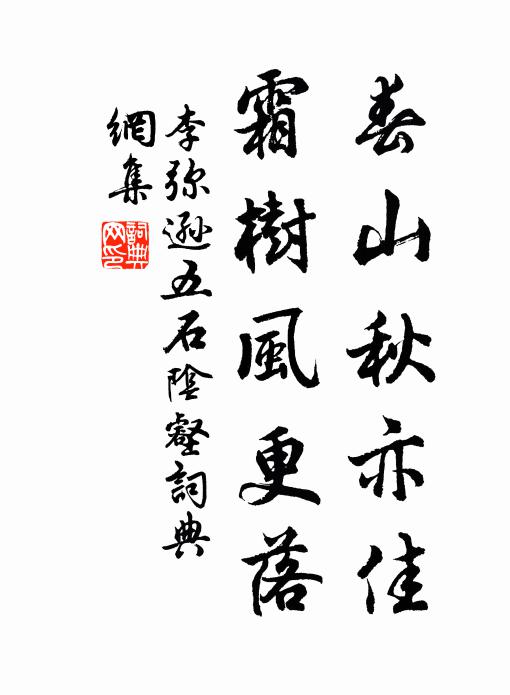 春山秋亦佳
霜樹風更落
李弥遜五石陰壑詞典
網集
詞典
网印